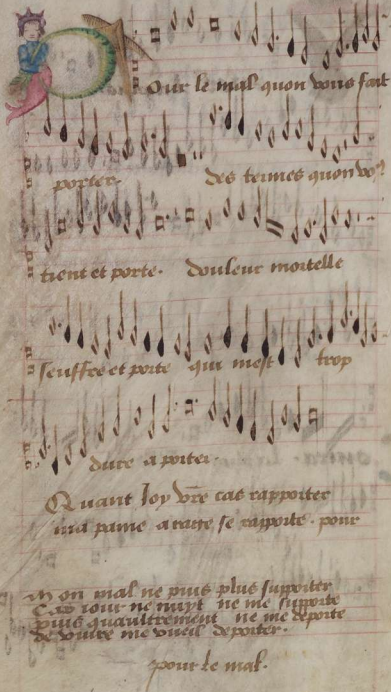 Pour le mal quon vous fait
porter. des termes quon vo9
tient et porte. douleur mortelle
seuffre et porte qui mest trop
dure a porter.
Quant Joy vre cas rapporter
ma paine a se rapporte. pour
mon mal ne puis plus supporter
Car iour ne nuyt ne me supporte
puis quaultrement ne me deporte
de viure me vueil deporter.
pour le mal.